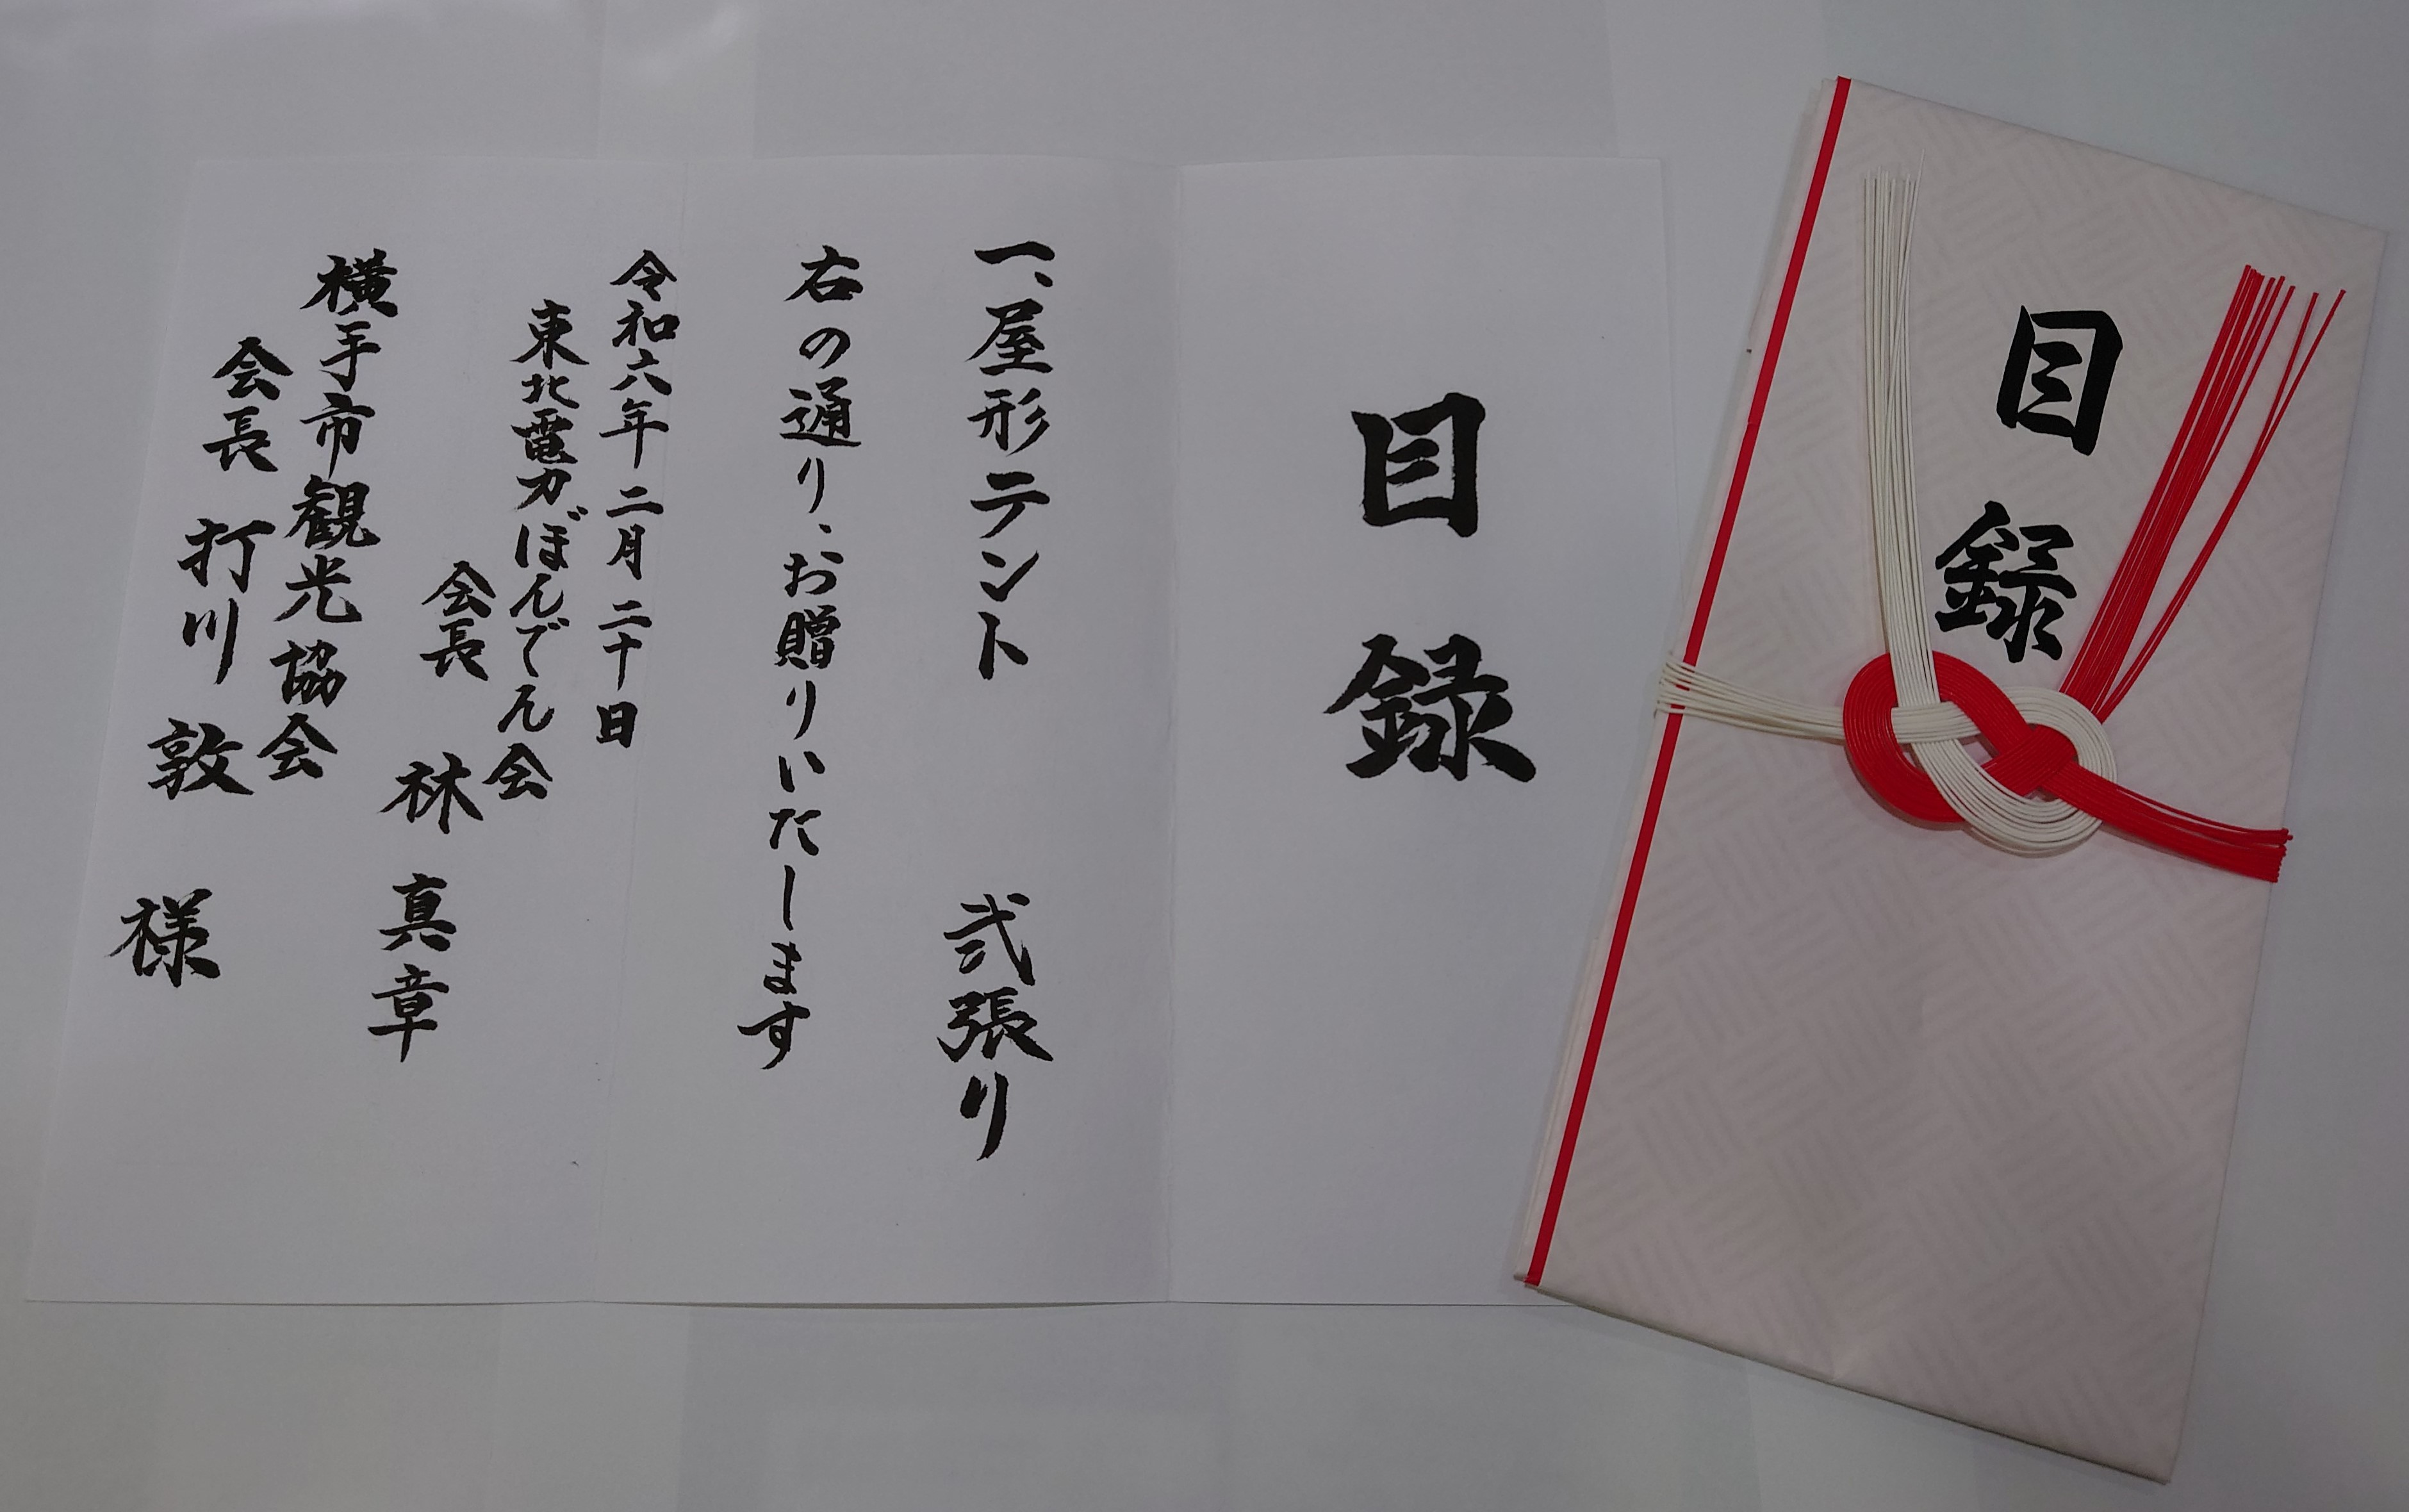 目録
目録
一、屋形テント 弐張り
右の通り、お贈りいたします
令和六年二月二十日
東北電力ぼんでん会
会長 林 真章
横手市観光協会
会長 打川 敦 様